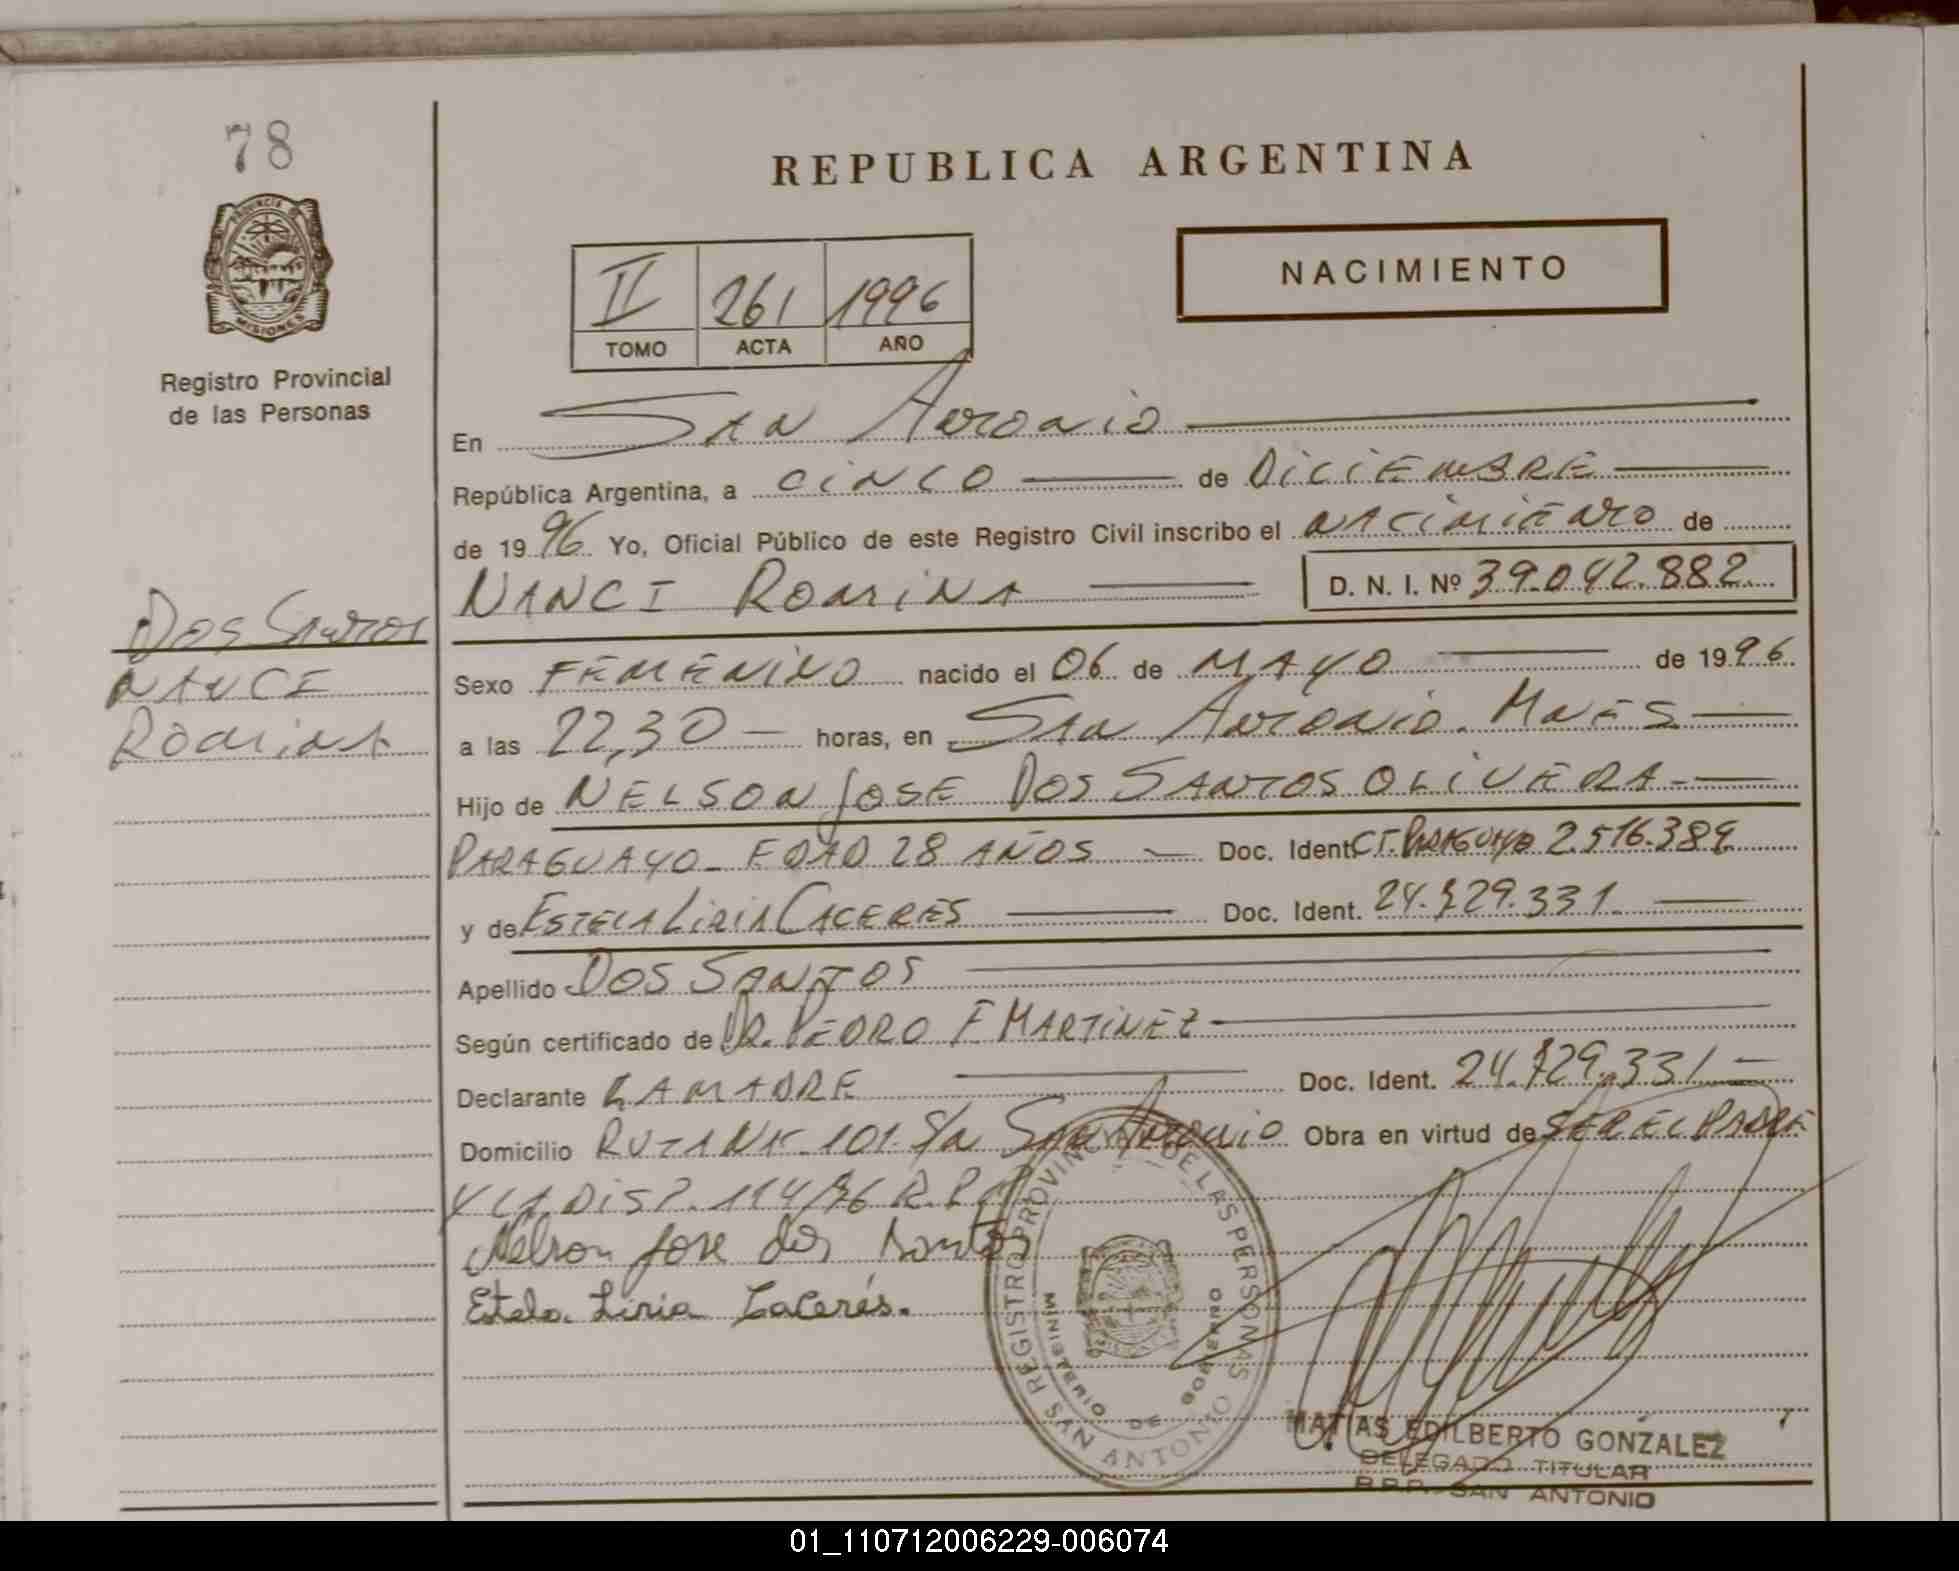 78
REPUBLICA ARGENTINA
PROVINCIA DE
MISIONES
II 261 1996
TOMO ACTA AÑO
NACIMIENTO
Registro Provincial
de las Personas
En San Antonio
República Argentina, a CINCO de DICIEMBRE
de 1996 Yo, Oficial Público de este Registro Civil inscribo el NACIMIENTO de
NANCI ROMINA D. N. I. Nº 39.042.882
Dos Santos
NANCI
Romina
Sexo FEMENINO nacido el 06 de MAYO de 1996
a las 22,30 horas, en San Antonio. Mnes
Hijo de NELSON JOSE DOS SANTOS OLIVERA
PARAGUAYO - EDAD 28 AÑOS Doc. Ident. CI. Paraguaya 2.516.389
y de ESTELA LIRIA CACERES Doc. Ident. 24. 29.331
Apellido DOS SANTOS
Según certificado de DR. PEDRO F MARTINEZ
Declarante LA MADRE Doc. Ident. 24. 29.331
Domicilio RUTA NAC. 101 S/n San Antonio Obra en virtud de SER EL PADRE
Y LA DISP. 114/96 R.P.P
Nelson Jose dos Santos
Estela Liria Caceres.
REGISTRO PROVINCIAL DE LAS PERSONAS
MINISTERIO DE GOBIERNO
SAN ANTONIO
MATIAS EDILBERTO GONZALEZ
DELEGADO TITULAR
R.P.P. SAN ANTONIO
01_110712006229-006074